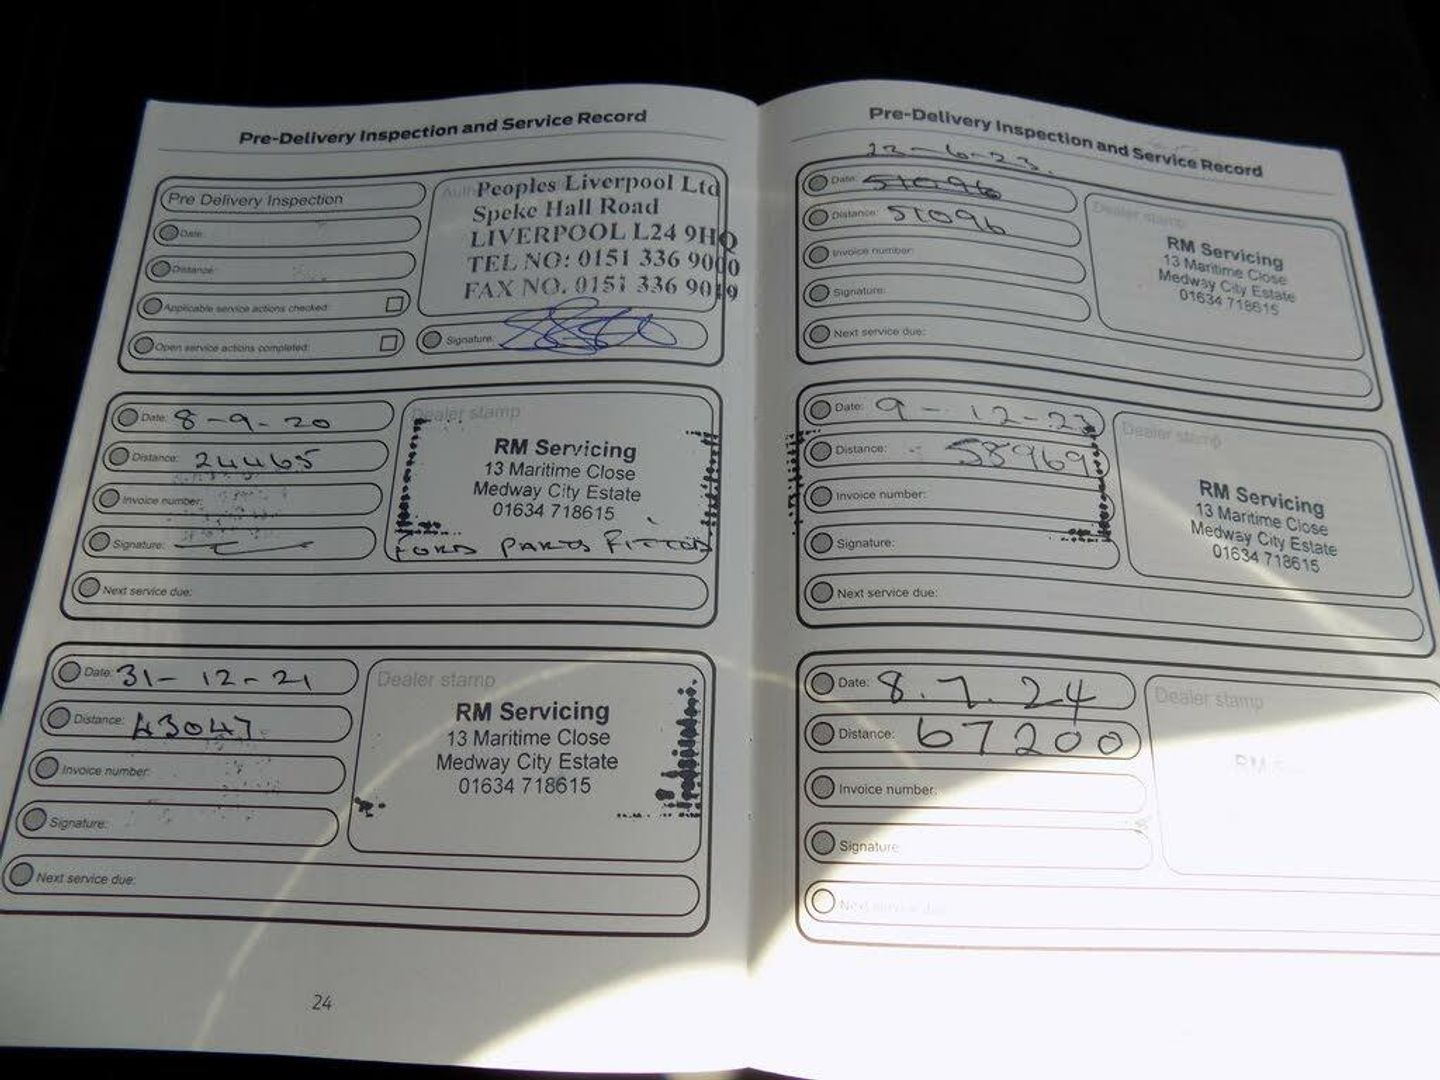 Pre-Delivery Inspection and Service Record
Pre Delivery Inspection
Date:
Distance:
Applicable service actions checked:
Open service actions completed:
Peoples Liverpool Ltd
Speke Hall Road
LIVERPOOL L24 9HQ
TEL NO: 0151 336 9000
FAX NO. 0151 336 9019
Signature:
Date: 8-9-20
Distance: 24465
Invoice number:
Signature:
Next service due:
Dealer stamp
RM Servicing
13 Maritime Close
Medway City Estate
01634 718615
FORD PARTS FITTED
Date: 31-12-21
Distance: 43047
Invoice number:
Signature:
Next service due:
Dealer stamp
RM Servicing
13 Maritime Close
Medway City Estate
01634 718615
24
Pre-Delivery Inspection and Service Record
23-6-23.
Date: 51096
Distance: 51096
Invoice number:
Signature:
Next service due:
Dealer stamp
RM Servicing
13 Maritime Close
Medway City Estate
01634 718615
Date: 9-12-23
Distance: 58969
Invoice number:
Signature:
Next service due:
Dealer stamp
RM Servicing
13 Maritime Close
Medway City Estate
01634 718615
Date: 8.7.24
Distance: 67200
Invoice number:
Signature:
Next service due:
Dealer stamp
RM